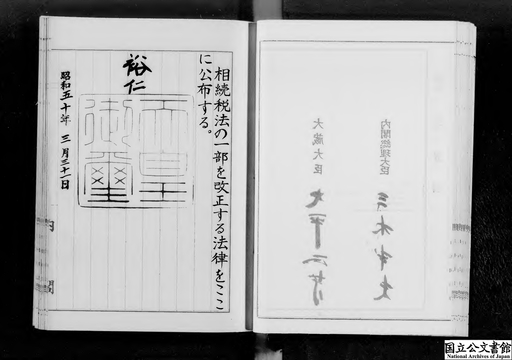 相続税法の一部を改正する法律をここ
に公布する。
裕仁
天皇
御璽
昭和五十年三月三十一日
内閣
内閣総理大臣
三木武夫
大蔵大臣
大平正芳
国立公文書館
National Archives of Japan